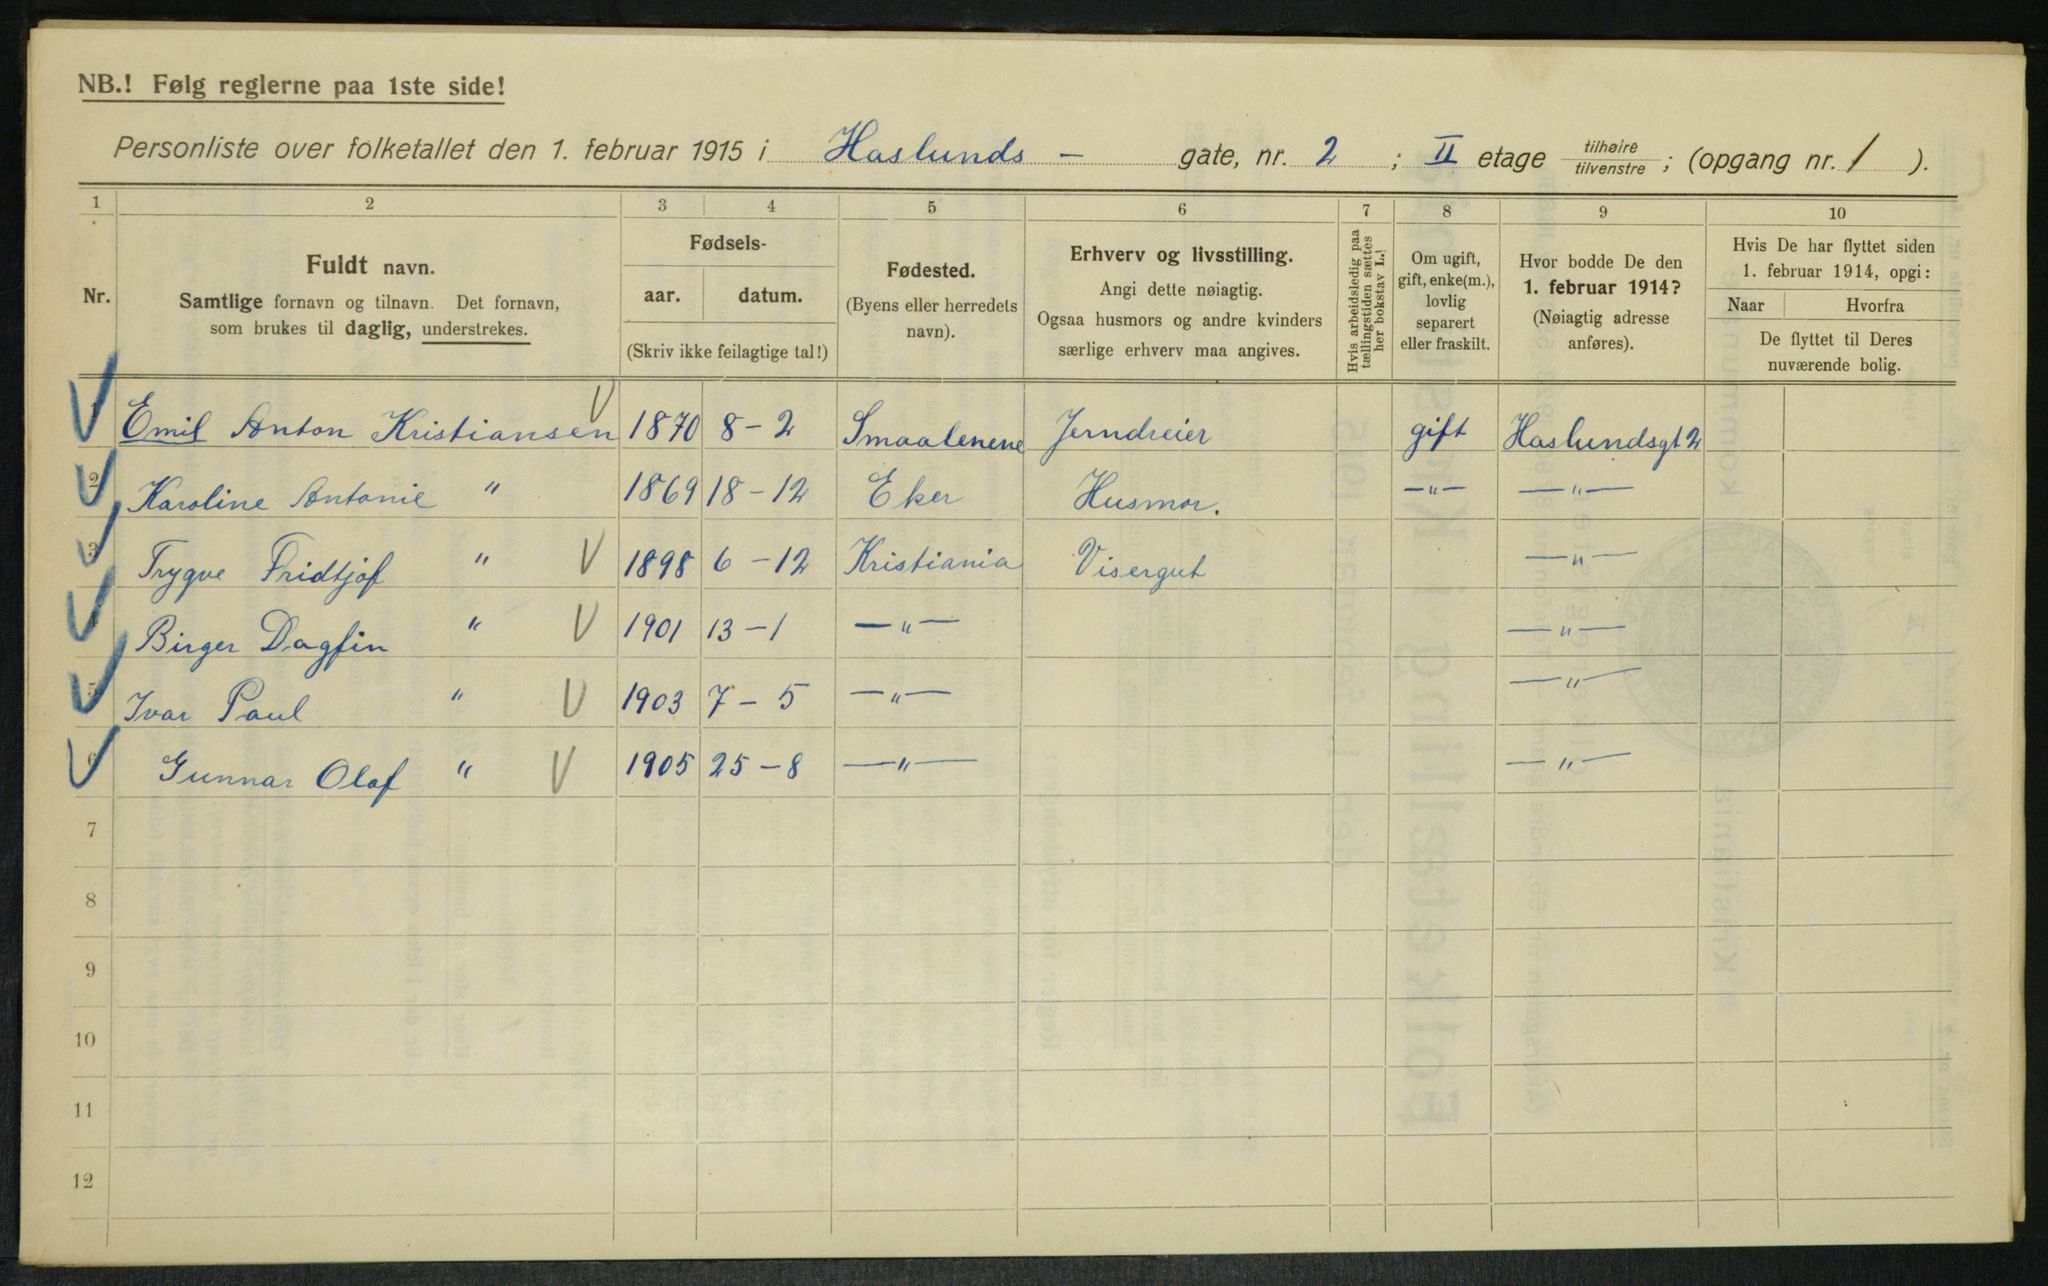 NB.! Følg reglerne paa 1ste side!
Personliste over folketallet den 1. februar 1915 i Haslunds - gate, nr. 2 ; II etage tilhøire / tilvenstre ; (opgang nr. 1 ).
1 2 3 4 5 6 7 8 9 10
Nr.
Fuldt navn.
Samtlige fornavn og tilnavn. Det fornavn,
som brukes til daglig, understrekes.
Fødsels-
aar. datum.
(Skriv ikke feilagtige tal!)
Fødested.
(Byens eller herredets
navn).
Erhverv og livsstilling.
Angi dette nøiagtig.
Ogsaa husmors og andre kvinders
særlige erhverv maa angives.
Hvis arbeidsledig paa
tællingstiden sættes
her bokstav L.!
Om ugift,
gift, enke(m.),
lovlig
separert
eller fraskilt.
Hvor bodde De den
1. februar 1914?
(Nøiagtig adresse
anføres).
Hvis De har flyttet siden
1. februar 1914, opgi:
Naar Hvorfra
De flyttet til Deres
nuværende bolig.
1 Emil Anton Kristiansen 1870 8-2 Smaalenene Jerndreier gift Haslundsgt 2
2 Karoline Antonie " 1869 18-12 Eker Husmor. —"— —"—
3 Trygve Fridtjof " 1898 6-12 Kristiania Visergut —"—
4 Birger Dagfin " 1901 13-1 —"— —"—
5 Ivar Paul " 1903 7-5 —"— —"—
6 Gunnar Olaf " 1905 25-8 —"— —"—
7
8
9
10
11
12